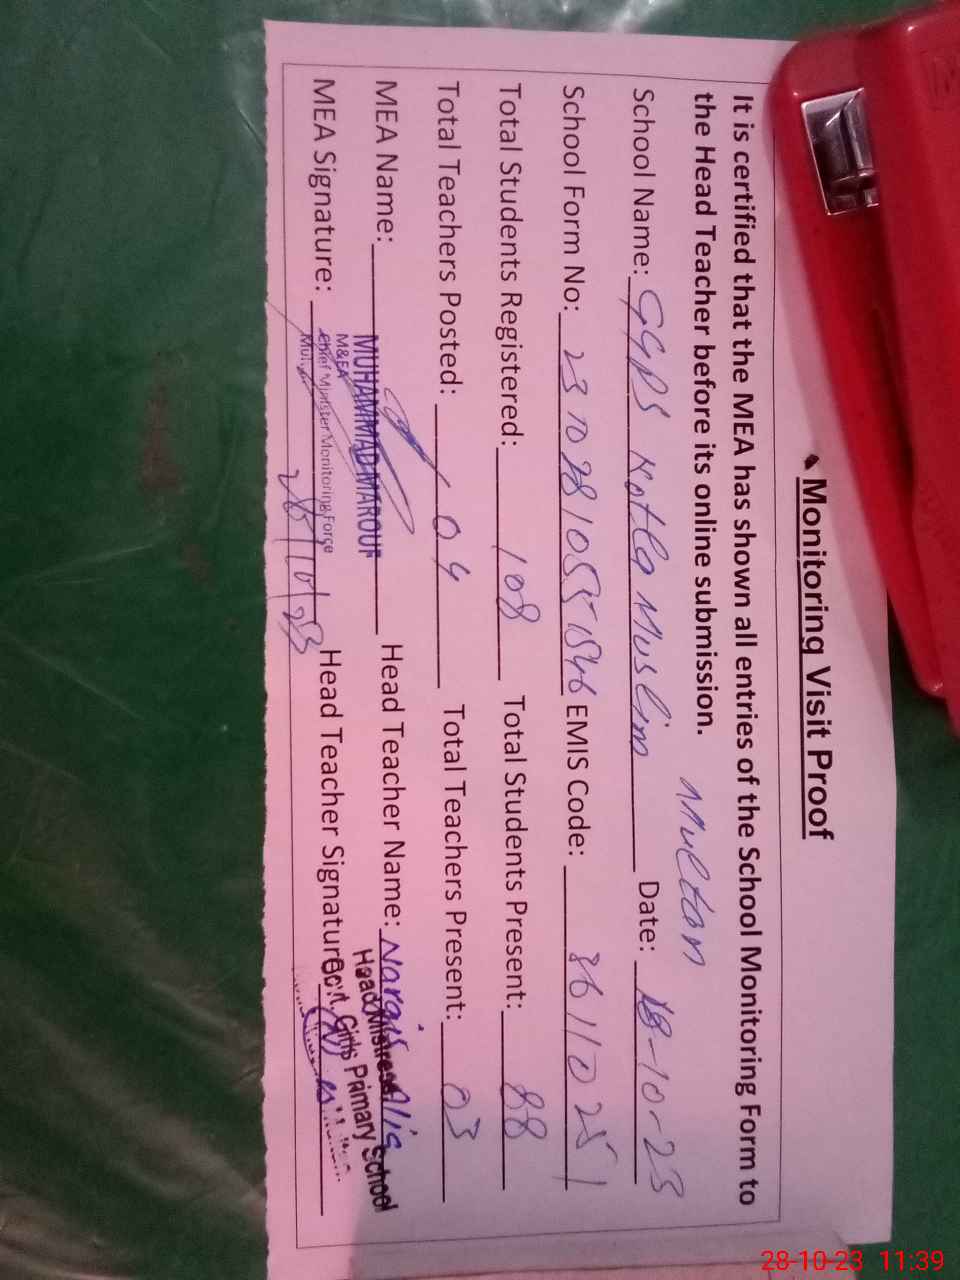 Monitoring Visit Proof
It is certified that the MEA has shown all entries of the School Monitoring Form to
the Head Teacher before its online submission.
Multan
School Name: GGPS Kotla Muslim Date: 28-10-23
School Form No: EMIS Code: 36110251
Total Students Registered: 108 Total Students Present: 88
Total Teachers Posted: 04 Total Teachers Present: 03
MEA Name: MUHAMMAD MAROUF Head Teacher Name: Nargis
M&EA
Chief Minister Monitoring Force
Head Mistress
Govt. Girls Primary School
MEA Signature: 28/10/23 Head Teacher Signature:
28-10-23 11:39